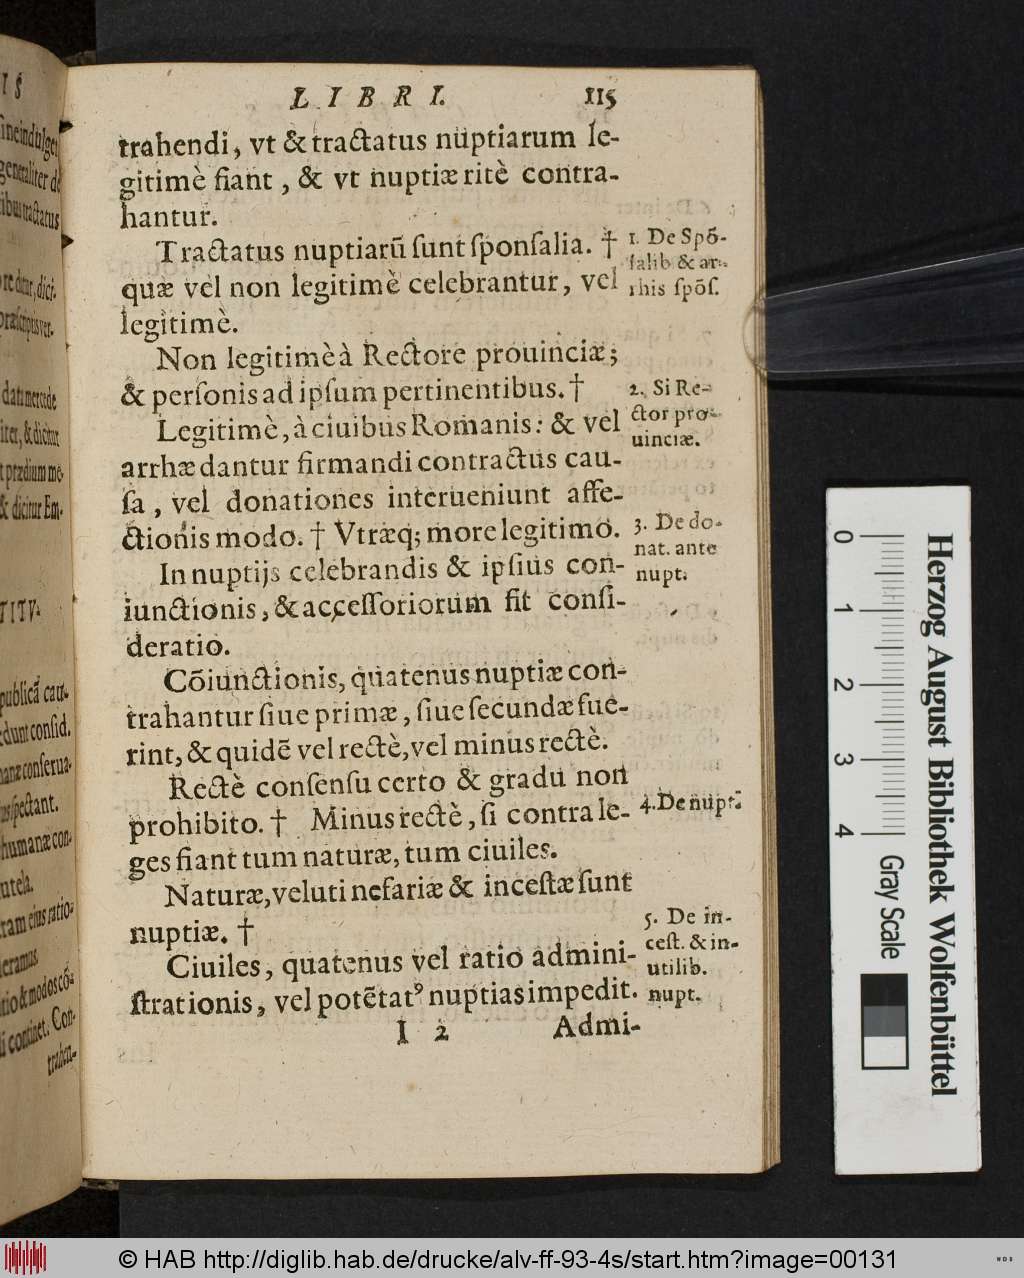 LIBRI. 115
trahendi, vt & tractatus nuptiarum le-
gitimè fiant, & vt nuptiæ ritè contra-
hantur.
Tractatus nuptiarũ ſunt ſponſalia. †
quæ vel non legitimè celebrantur, vel
legitimè.
1. De Spõ-
ſalib & ar-
rhis ſpõſ.
Non legitimè à Rectore prouinciæ;
& perſonis ad ipſum pertinentibus. †
2. Si Re-
ctor pro-
uinciæ.
Legitimè, à ciuibus Romanis: & vel
arrhæ dantur firmandi contractus cau-
ſa, vel donationes interueniunt affe-
ctionis modo. † Vtræq; more legitimo.
3. De do-
nat. ante
nupt.
In nuptijs celebrandis & ipſius con-
iunctionis, & acceſſoriorum fit conſi-
deratio.
Cõiunctionis, quatenus nuptiæ con-
trahantur ſiue primæ, ſiue ſecundæ fue-
rint, & quidẽ vel rectè, vel minus rectè.
Rectè conſenſu certo & gradu non
prohibito. † Minus rectè, ſi contra le-
ges fiant tum naturæ, tum ciuiles.
4. De nupt.
Naturæ, veluti nefariæ & inceſtæ ſunt
nuptiæ. †
5. De in-
ceſt. & in-
utilib.
nupt.
Ciuiles, quatenus vel ratio admini-
ſtrationis, vel potẽtatꝰ nuptias impedit.
I 2 Admi-
IS
generaliter de
tractatus
re dicitur, dici-
præſcriptis ver.
dati mercede
iter, & dicitur
t prædium me-
& dicitur Em-
TITV-
publicã cau-
conſid.
conſerua-
ſpectant.
humanæ con-
utela.
ram eius ratio-
& modos cõ-
continet. Con-
trahen-
0
1
2
3
4
Herzog August Bibliothek Wolfenbüttel
Gray Scale
© HAB http://diglib.hab.de/drucke/alv-ff-93-4s/start.htm?image=00131